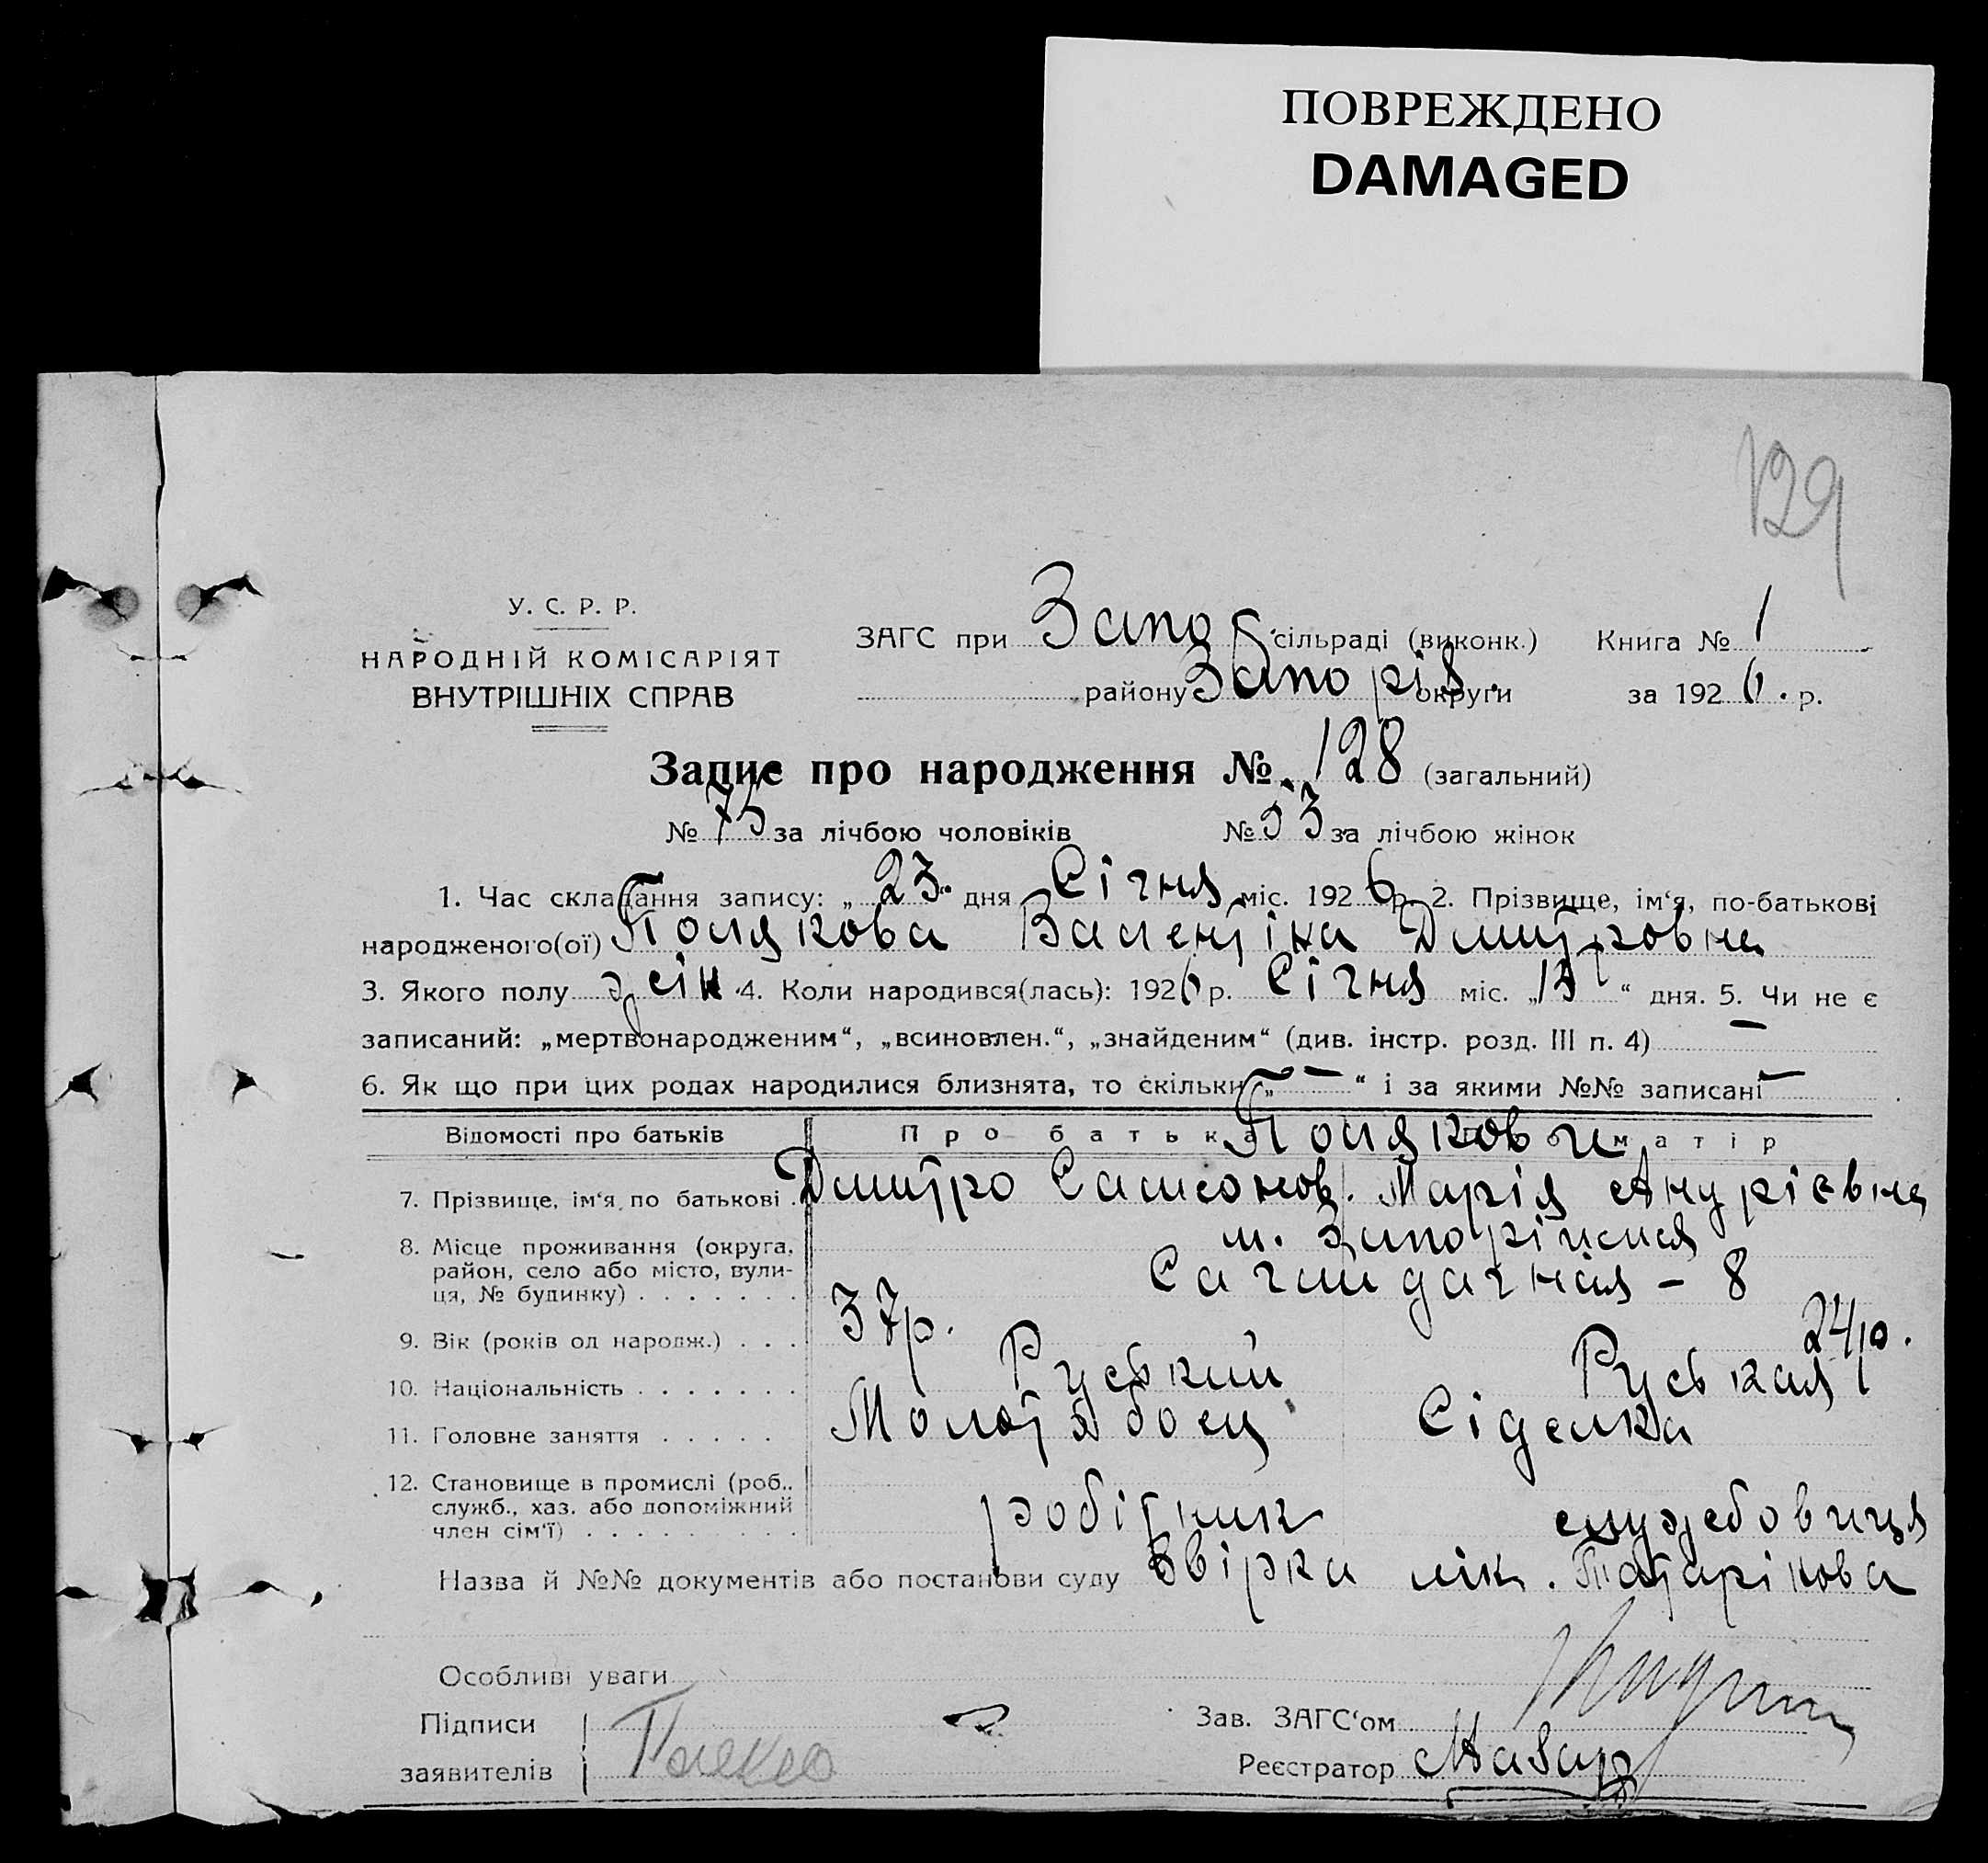 ПОВРЕЖДЕНО
DAMAGED
129
У. С. Р. Р.
НАРОДНІЙ КОМІСАРІЯТ
ВНУТРІШНІХ СПРАВ
ЗАГС при Запор. сільраді (виконк.) Книга № 1
району Запоріз. округи за 1926. р.
Запис про народження № 128 (загальний)
№ 75 за лічбою чоловіків № 53 за лічбою жінок
1. Час складання запису: „ 23 “ дня Січня міс. 1926 р. 2. Прізвище, ім‘я, по-батькові
народженого(ої) Полякова Валентіна Дмитровна
3. Якого полу жін. 4. Коли народився(лась): 1926 р. Січня міс. „ “ дня. 5. Чи не є
записаний: „мертвонародженим“, „всиновлен.“, „знайденим“ (див. інстр. розд. III п. 4) —
6. Як що при цих родах народилися близнята, то скільки „ — “ і за якими №№ записані —
Відомості про батьків Про батька Про матір
Полякови
7. Прізвище, ім‘я, по батькові . Дмитро Самсонов. Марія Андрієвна
8. Місце проживання (округа, район, село або місто, вули-ця, № будинку) . . . . . . . м. Запоріжжя
Сагайдачная – 8
9. Вік (років од народж.) . . . 37 р. 24 р.
10. Національність . . . . . . . Руський Руськая
11. Головне заняття . . . . . Молотобоец Сіделка
12. Становище в промислі (роб., служб., хаз. або допоміжний член сім‘ї) . . . . . . . . . робітник службовиця
Назва й №№ документів або постанови суду Звірка лік. Татарінова
Особливі уваги
Підписи
заявителів
Зав. ЗАГС‘ом
Реєстратор Назар